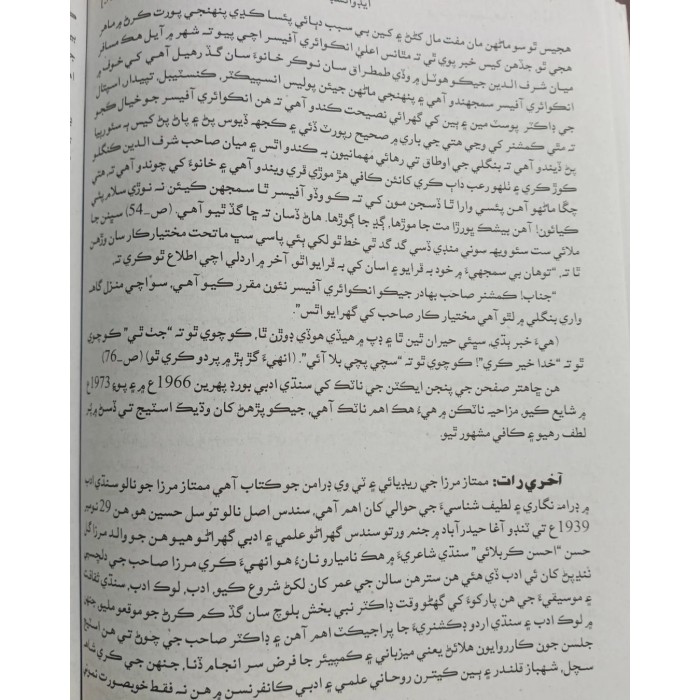 هجيس ٿو سو ماڻهن مان مفت مال کڻڻ ۽ کين بي سبب دٻائي پئسا کڏي پنهنجي پورت ڪرڻ ۾ ماهر
هجي ٿو جڏهن کيس خبر پوي ٿي تہ مٿانس اعليٰ انڪوائري آفيسر اچي پيو تہ شهر ۾ آيل هڪ مسافر
ميان شرف الدين جيڪو هوٽل ۾ وڏي طمطراق سان نوڪر خانوءَ سان گڏ رهيل آهي کي خوف ۾
انڪوائري آفيسر سمجهندو آهي ۽ پنهنجي ماڻهن جيئن پوليس انسپيڪٽر، ڪنسٽيبل، تپيدار، اسپتال
جي ڊاڪٽر، پوسٽ مين ۽ ٻين کي گهرائي نصيحت ڪندو آهي تہ هن انڪوائري آفيسر جو خيال ڪجو
تہ مٿي ڪمشنر کي وڃي هتي جي باري ۾ صحيح رپورٽ ڏئي ۽ ڪجهہ ڏيوس پڻ ۽ پاڻ پڻ کيس ٻہ سئو رپيا
پڻ ڏيندو آهي تہ بنگلي جي اوطاق تي رهائي مهمانيون بہ ڪندو اٿس ۽ ميان صاحب شرف الدين ڪنگلو
ڪوڙ ڪري ۽ ٺلهو رعب داب ڪري کانئن ڪافي هڙ موڙي ڦري ويندو آهي ۽ خانوءَ کي چوندو آهي تہ هتي
چڱا ماڻهو آهن پئسي وارا ٿا ڏسجن مون کي تہ ڪو وڏو آفيسر ٿا سمجهن ڪيئن نہ نوڙي سلام پئي
ڪيائون! آهن بيشڪ ڀورڙا مت جا موڙها، ڳڍ جا ڳوڙها. هاڻ ڏسان تہ ڇا گڏ ٿيو آهي. (ص_54) سڀن جا
ملائي ست سئو ويهہ سوني منڊي ڏسي گد گد ٿي خط ٿو لکي ٻئي پاسي سڀ ماتحت مختيارڪار سان وڙهن
ٿا تہ، ”توهان بي سمجهيءَ ۾ خود بہ ڦرايو ۽ اسان کي بہ ڦرايو اٿو. آخر ۾ اردلي اچي اطلاع ٿو ڪري تہ،
”جناب! ڪمشنر صاحب بهادر جيڪو انڪوائري آفيسر نئون مقرر ڪيو آهي، سو اچي منزل گاهہ
واري بنگلي ۾ لٿو آهي مختيار ڪار صاحب کي گهرايو اٿس“.
(هيءَ خبر ٻڌي، سڀئي حيران ٿين ٿا ۽ ڊپ ۾ هيڏي هوڏي ڊوڙن ٿا، ڪو چوي ٿو تہ ”جٽ ٿي“ ڪو چوي
ٿو تہ ”خدا خير ڪري“! ڪو چوي ٿو تہ ”سچي پچي بلا آئي“. (انهيءَ گڙ ٻڙ ۾ پردو ڪري ٿو) (ص_76)
هن ڇاهتر صفحن جي پنجن ايڪٽن جي ناٽڪ کي سنڌي ادبي بورڊ پهرين 1966ع ۾ ۽ پوءِ 1973ع
۾ شايع ڪيو. مزاحيہ ناٽڪن ۾ هيءُ هڪ اهم ناٽڪ آهي، جيڪو پڙهڻ کان وڌيڪ اسٽيج تي ڏسڻ ۾ پُر
لطف رهيو ۽ ڪافي مشهور ٿيو.
آخري رات: ممتاز مرزا جي ريڊيائي ۽ ٽي وي ڊرامن جو ڪتاب آهي ممتاز مرزا جو نالو سنڌي ادب
۾ ڊرامہ نگاري ۽ لطيف شناسيءَ جي حوالي کان اهم آهي، سندس اصل نالو توسل حسين هو. هن 29 نومبر
1939ع تي ٽنڊو آغا حيدرآباد ۾ جنم ورتو سندس گهراڻو علمي ۽ ادبي گهراڻو هيو هن جو والد مرزا گل
حسن ”احسن ڪربلائي“ سنڌي شاعريءَ ۾ هڪ ناميارو نانءُ هو انهيءَ ڪري مرزا صاحب جي دلچسپي
ننڍپڻ کان ئي ادب ڏي هئي هن سترهن سالن جي عمر کان لکڻ شروع ڪيو. ادب، لوڪ ادب، سنڌي ثقافت
۽ موسيقيءَ جي هن پارکوءَ کي گهڻو وقت ڊاڪٽر نبي بخش بلوچ سان گڏ ڪم ڪرڻ جو موقعو مليو، جنهن
۾ لوڪ ادب ۽ سنڌي اردو ڊڪشنريءَ جا پراجيڪٽ اهم آهن ۽ ڊاڪٽر صاحب جي چوڻ تي هن اسٽيج
جلسن جون ڪارروايون هلائڻ يعني ميزباني ۽ ڪمپيئر جا فرض سر انجام ڏنا، جنهن جي ڪري شاهہ
سچل، شهباز قلندر ۽ ٻين ڪيترن روحاني علمي ۽ ادبي ڪانفرنسن ۾ هن نہ فقط خوبصورت نموني